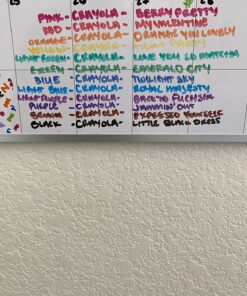 25 26 27 28
PINK - CRAYOLA - BERRY PRETTY
RED - CRAYOLA - MY VALENTINE
ORANGE - CRAYOLA - ORANGE YOU LOVELY
YELLOW - CRAYOLA - PARTY
LIGHT GREEN - CRAYOLA - LOVE YOU SO MATCHA
GREEN - CRAYOLA - EMERALD CITY
BLUE - CRAYOLA - TWILIGHT SKY
LIGHT BLUE - CRAYOLA - ROYAL MAJESTY
LIGHT PURPLE - CRAYOLA - BACK TO FUCHSIA
PURPLE - CRAYOLA - JAMMIN' OUT
BROWN - CRAYOLA - EXPRESSO YOURSELF
BLACK - CRAYOLA - LITTLE BLACK DRESS